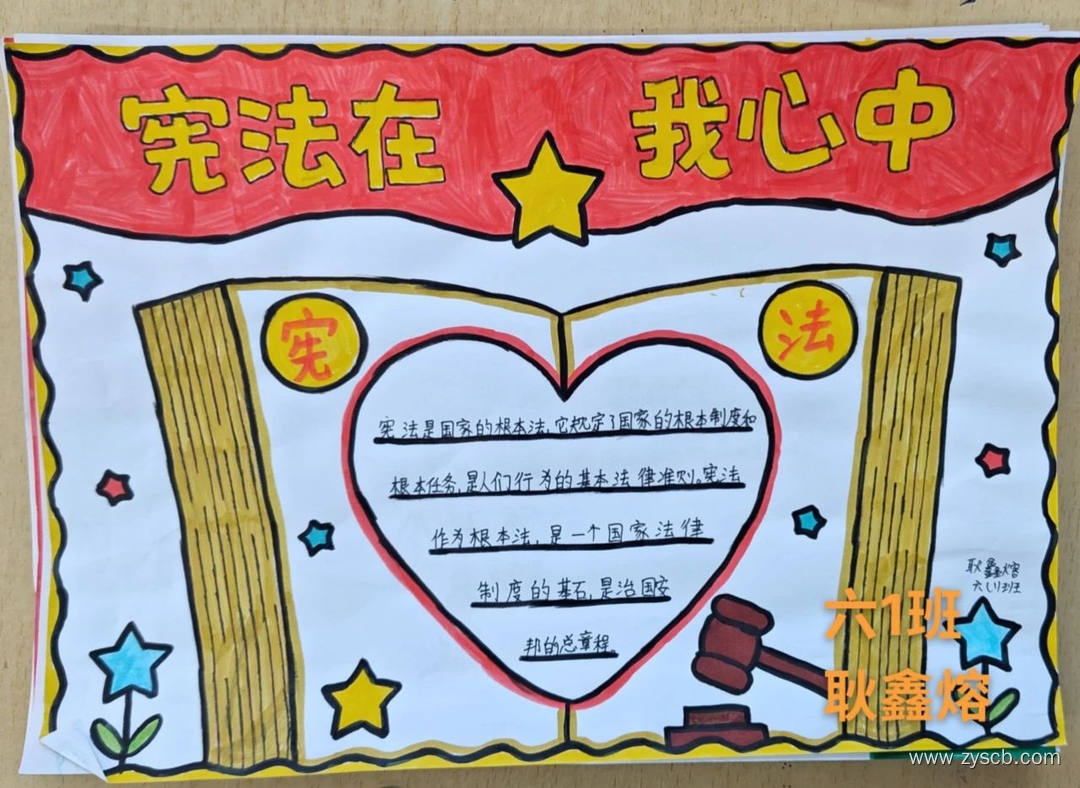 宪法在 我心中
宪 法
宪法是国家的根本法,它规定了国家的根本制度和
根本任务,是人们行为的基本法律准则。宪法
作为根本法,是一个国家法律
制度的基石,是治国安
邦的总章程。
耿鑫熔
六(1)班
六1班
耿鑫熔
www.zyscb.com